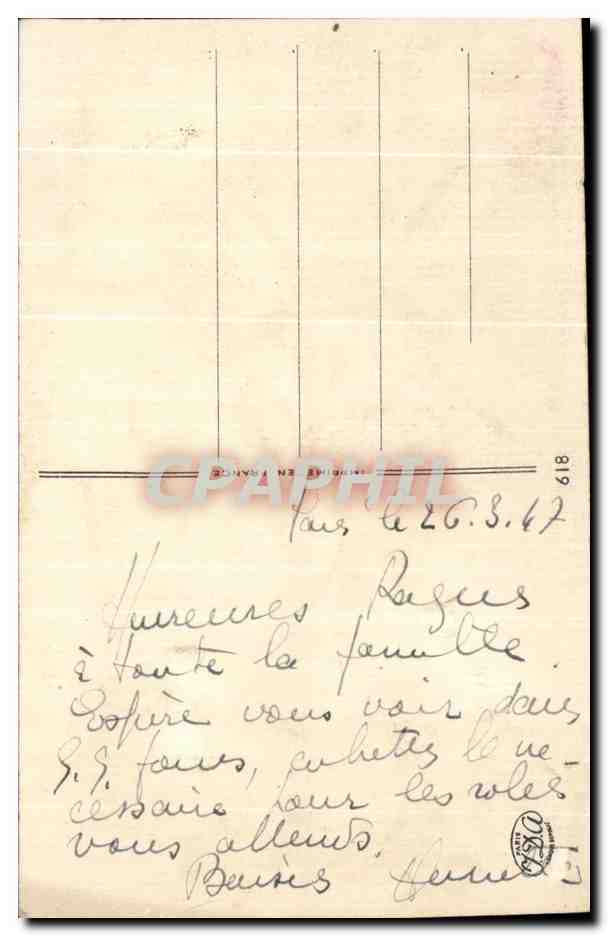 IMPRIMÉ EN FRANCE
618
CPAPHIL
Paris le 26.3.47
Heureuses Paques
à toute la famille
Espère vous voir dans
q.q. jours, achetez le ne-
cessaire pour les robes
vous attends.
Baisers
PARIS